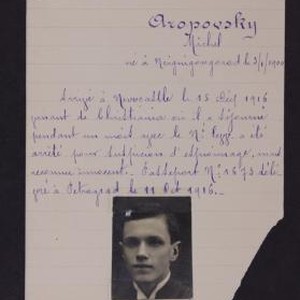 Aropovsky
Michel
né à Neignigongorod le 3/1/1900
Arrivé à Newcastle le 15 Sept 1916
venant de Christiania où il a séjourné
pendant un mois avec le Nº Pegg a été
arrêté pour suspicion d'espionnage, mais
reconnu innocent. Passeport Nº 1675 déli-
vré à Petrograd le 11 Oct 1916.